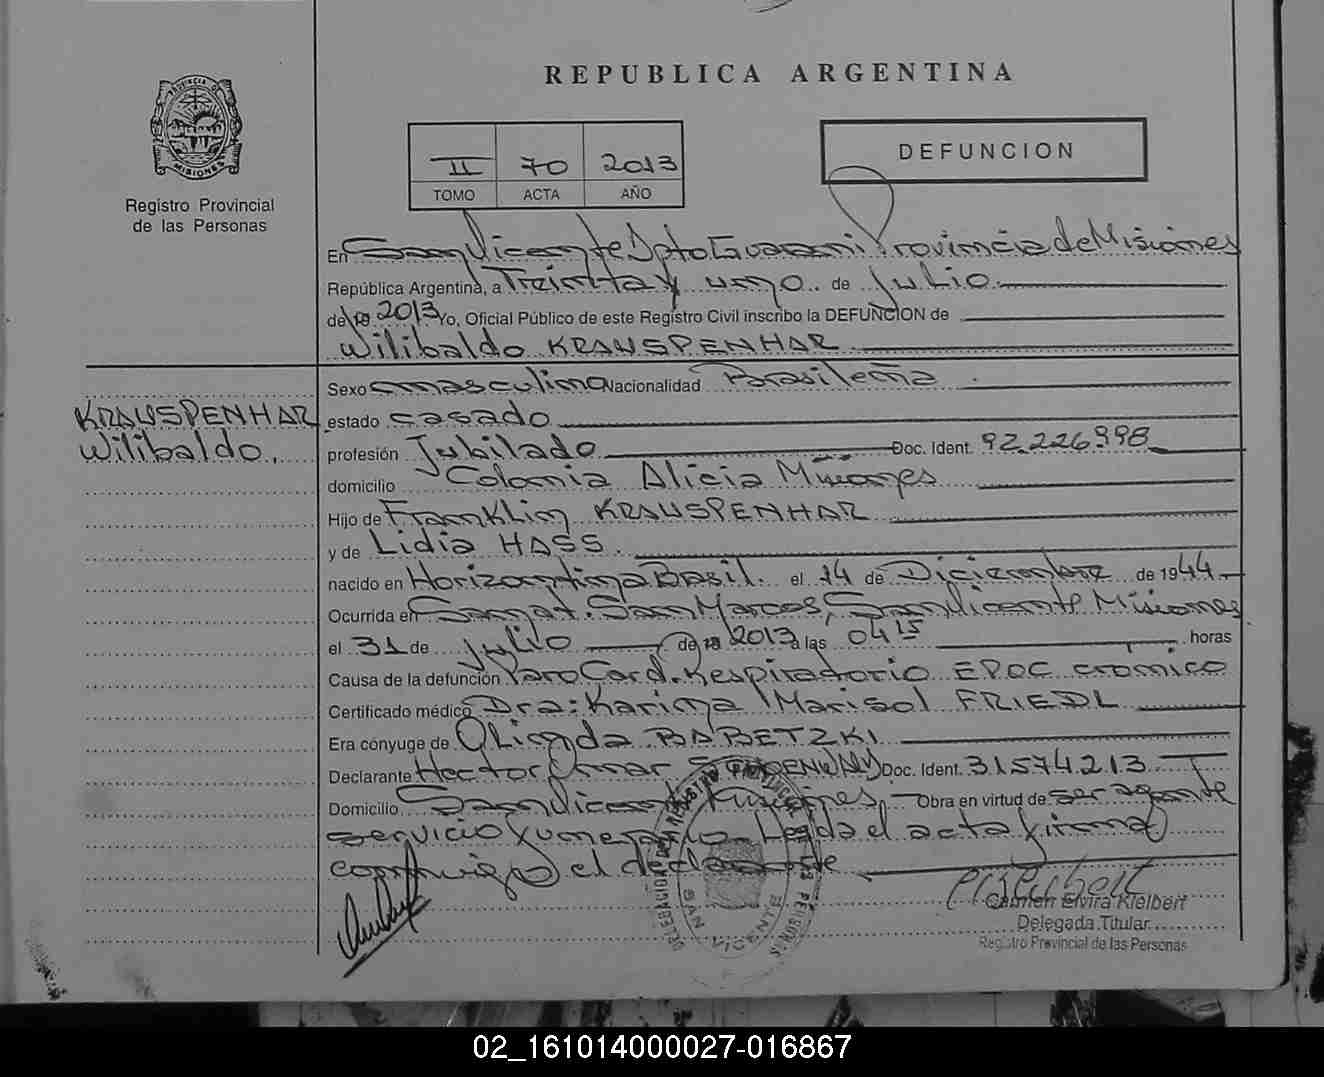 REPUBLICA ARGENTINA
PROVINCIA DE MISIONES
Registro Provincial
de las Personas
II 70 2013
TOMO ACTA AÑO
DEFUNCION
En San Vicente Dpto Guarani Provincia de Misiones
República Argentina, a Treinta y uno de Julio
de 2013 Yo, Oficial Público de este Registro Civil inscribo la DEFUNCION de
Wilibaldo KRAUSPENHAR
KRAUSPENHAR
Wilibaldo.
Sexo masculino Nacionalidad Brasileña
estado casado
profesión Jubilado Doc. Ident. 92.226.998
domicilio Colonia Alicia Misiones
Hijo de Franklin KRAUSPENHAR
y de Lidia HASS.
nacido en Horizontina Brasil. el 14 de Diciembre de 1944
Ocurrida en Sanat. San Marcos, San Vicente Misiones
el 31 de Julio de 2013 a las 04 15 horas
Causa de la defunción Paro Card. Respiratorio EPOC cronico
Certificado médico Dra: Karina Marisol FRIEDL
Era cónyuge de Olinda BABETZKI
Declarante Hector Omar Doc. Ident. 31574.213
Domicilio San Vicente Misiones, Obra en virtud de ser agente
servicio funerario. Leida el acta firma
conmigo el declarante
Carmen Elvira Kielbert
Delegada Titular
Registro Provincial de las Personas
SAN VICENTE
02_161014000027-016867